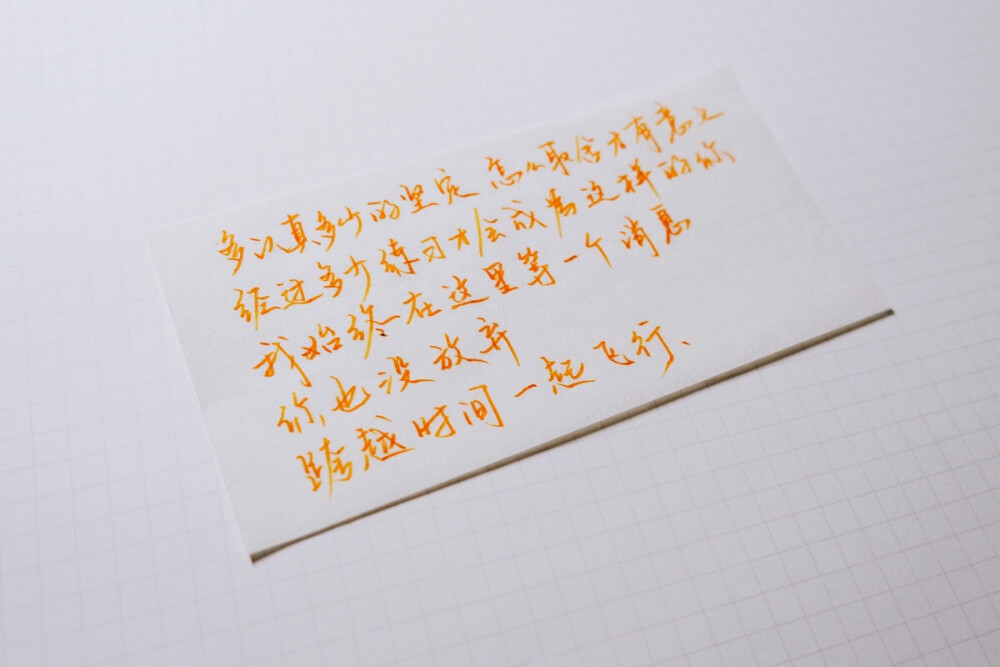 多认真多少的坚定 怎么取舍才有意义
经过多少练习才会成为这样的你
我始终在这里等一个消息
你也没放弃
跨越时间一起飞行